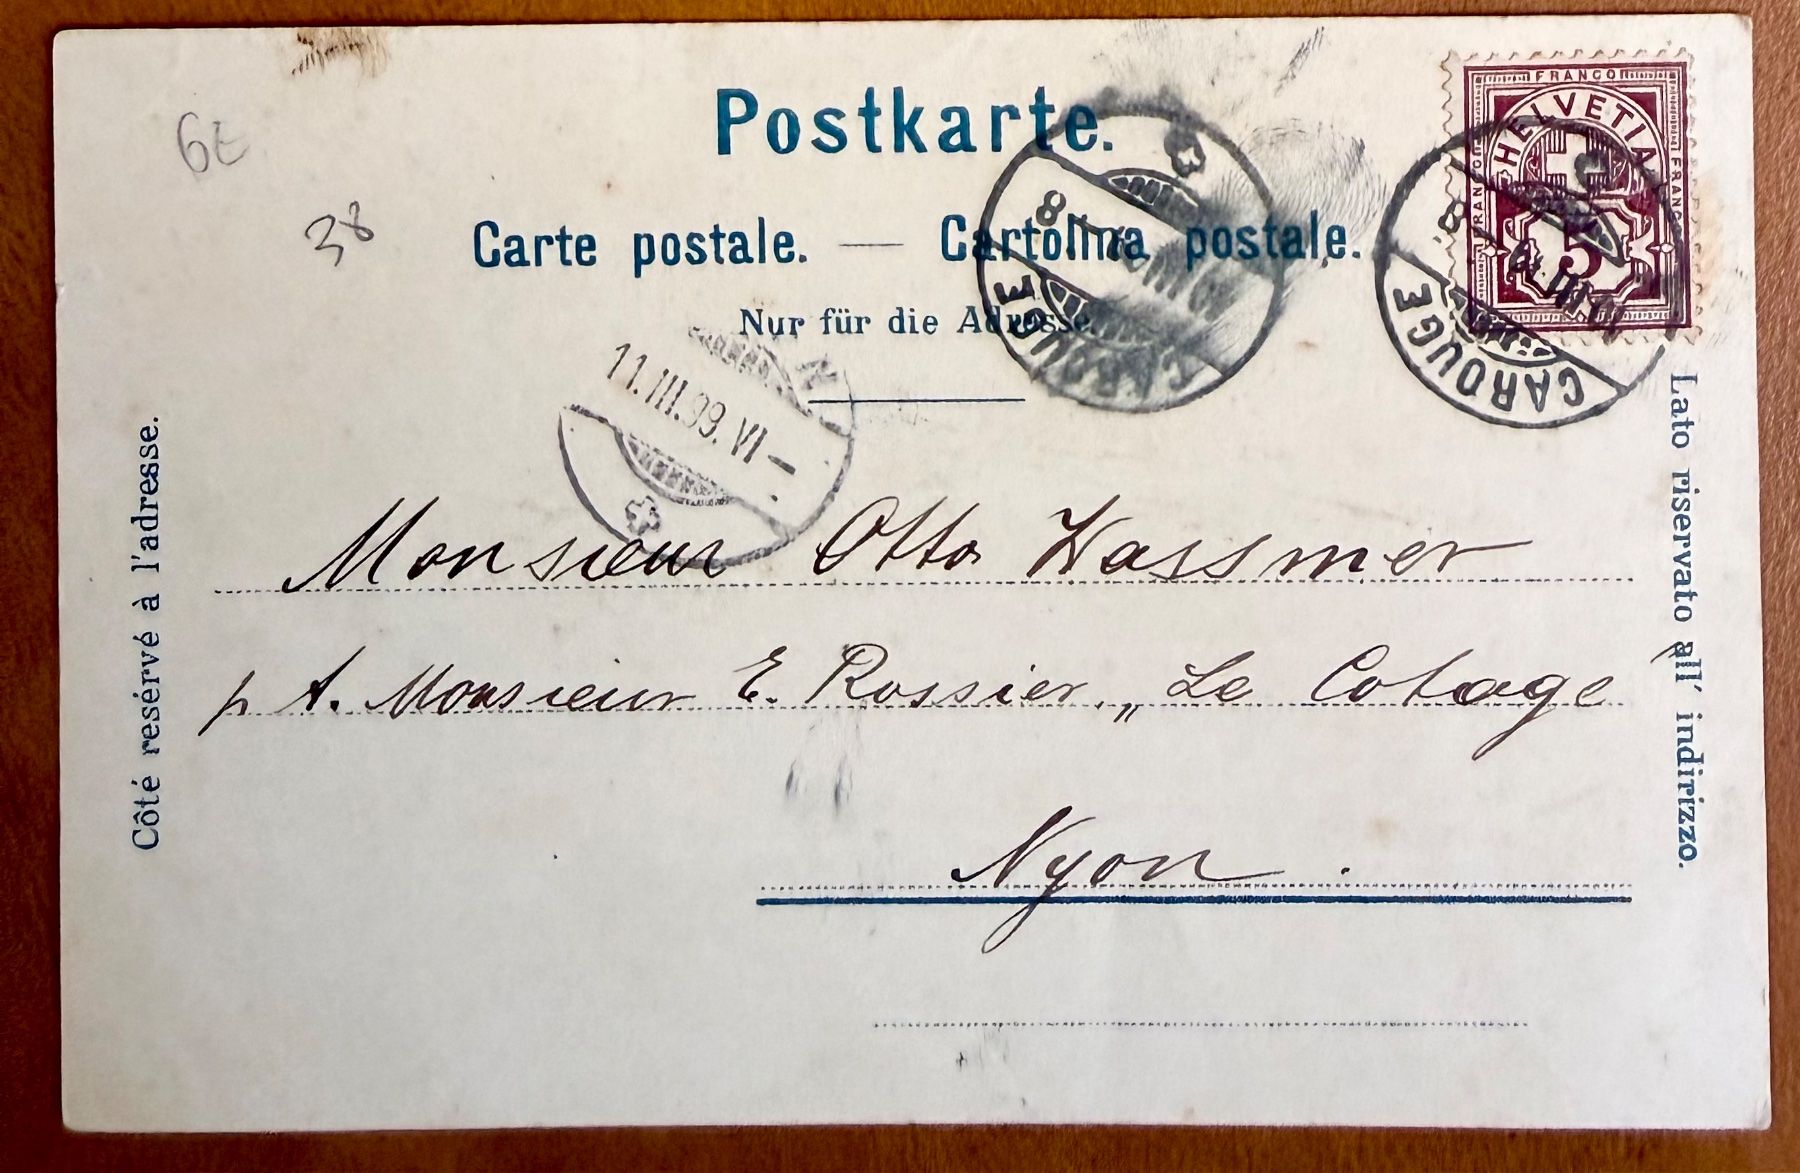 Postkarte.
Carte postale. — Cartolina postale.
Nur für die Adresse.
Côté resérvé à l'adresse.
Lato riservato all' indirizzo.
FRANCO
FRANCO
FRANCO
HELVETIA
5
CAROUGE
8
CAROUGE
8
11.III.99.VI–
N
6E
38
Monsieur Otto Wassmer
p A. Monsieur E. Rossier, „Le Cotage
Nyon.